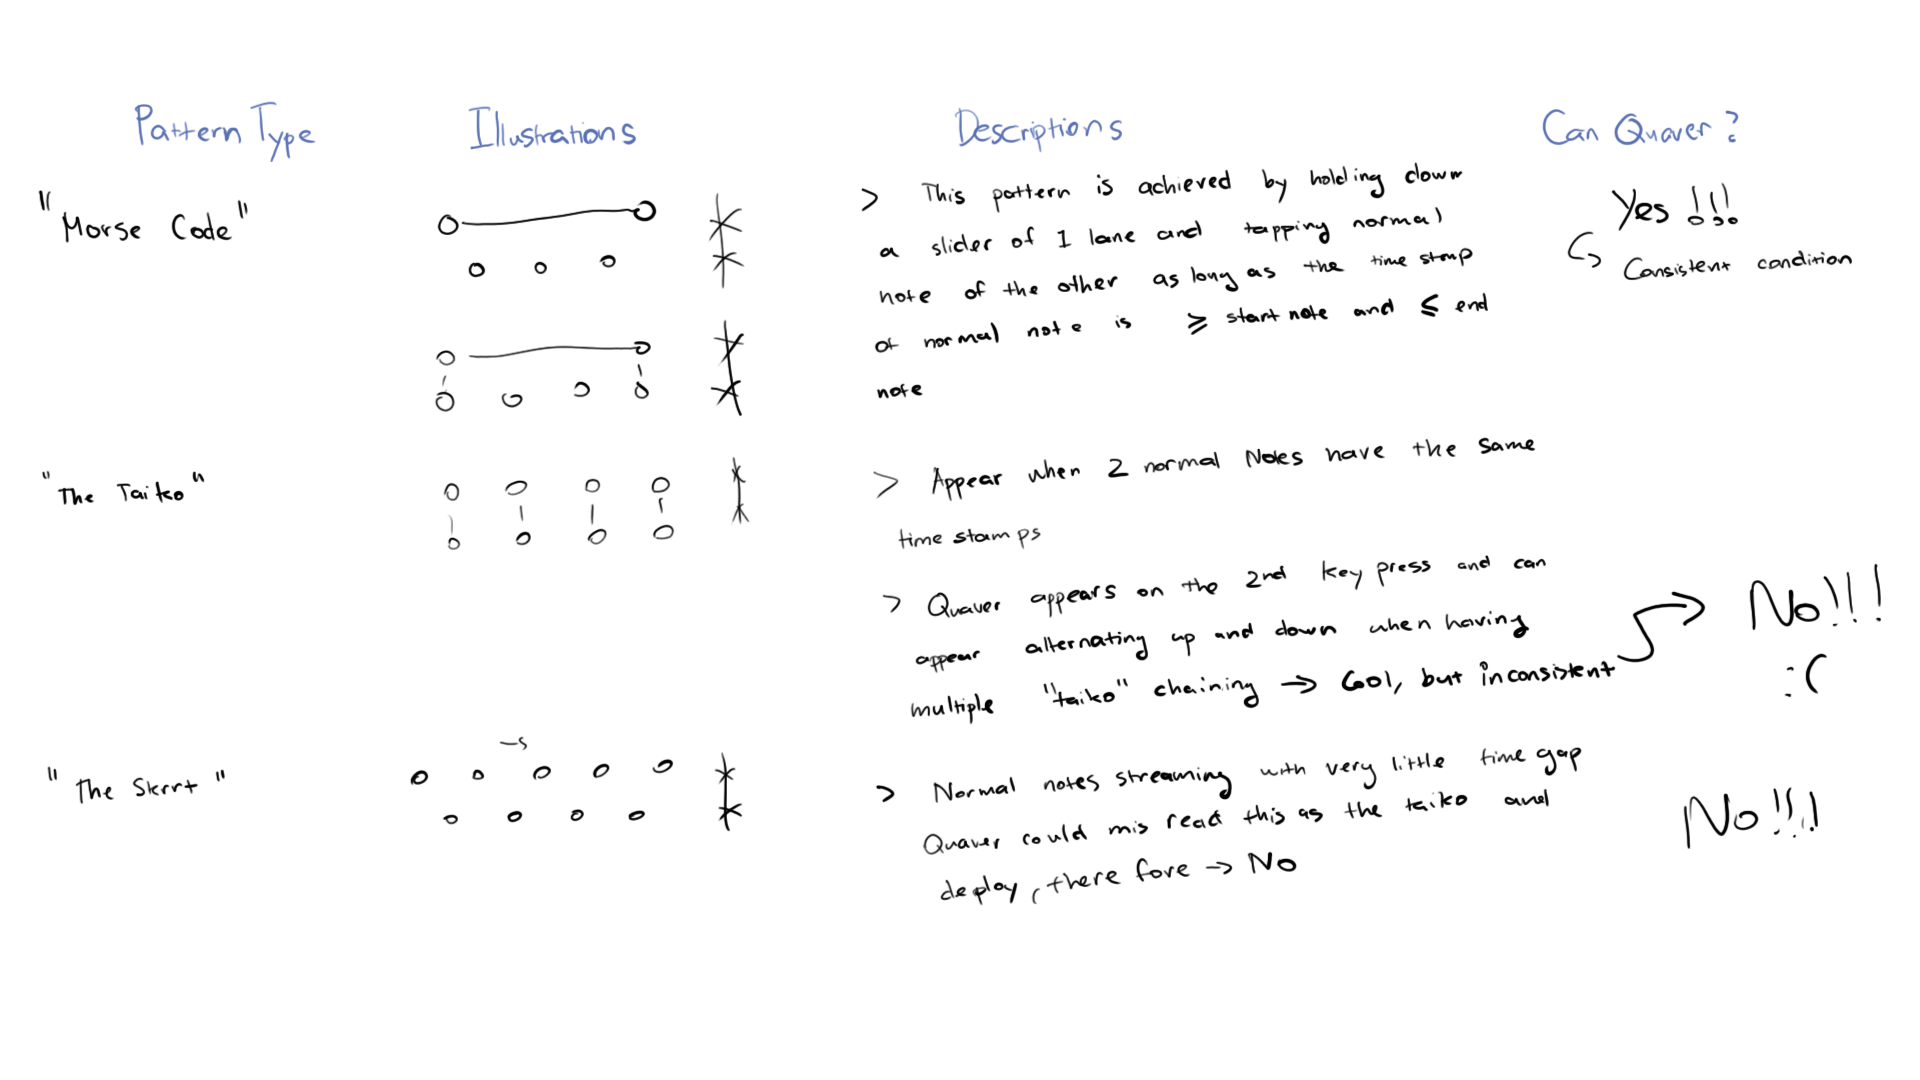 Pattern Type
Illustrations
Descriptions
Can Quaver?
"Morse Code"
> This pattern is achieved by holding down
a slider of 1 lane and tapping normal
note of the other as long as the time stamp
of normal note is ≥ start note and ≤ end
note
Yes!!!
Consistent condition
"The Taiko"
> Appear when 2 normal Notes have the same
time stamps
> Quaver appears on the 2nd key press and can
appear alternating up and down when having
multiple "taiko" chaining → Cool, but inconsistent
No!!!
:(
"The Skrrt"
> Normal notes streaming with very little time gap
Quaver could mis read this as the taiko and
deploy, there fore → No
No!!!